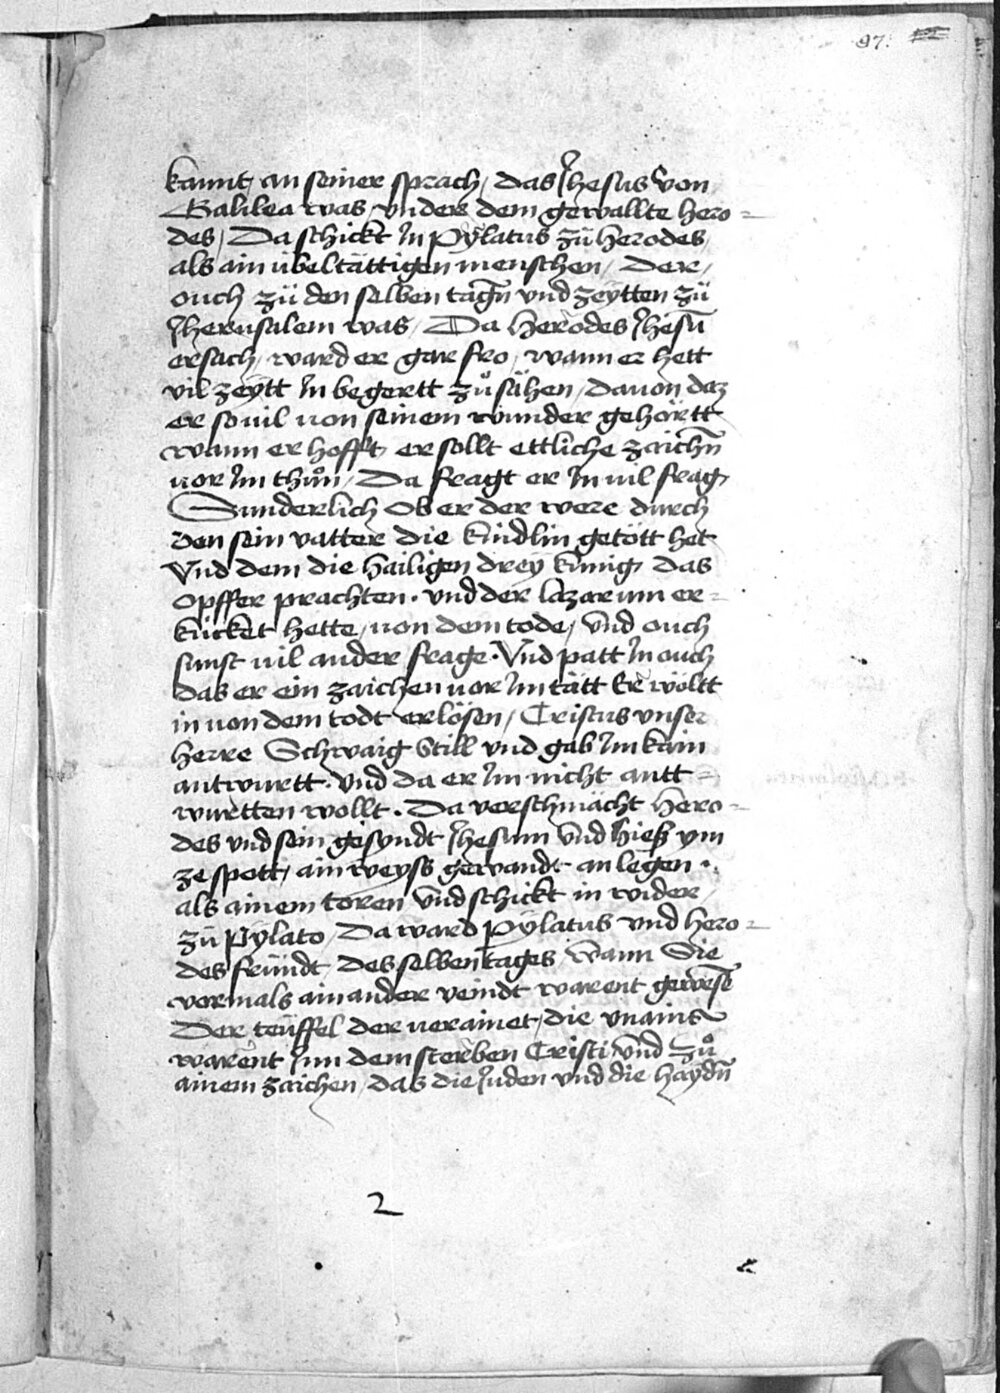 97.
kannt, an seiner sprach, das Jhesus von
Galilea was, vnder dem gewallte hero=
des, Da schickt Jn Pÿlatus zü herodes,
als ain übeltättigen menschen, Der,
ouch zü den selben tagn̄ vnd zeÿtten zü
Jherusalem was, Da Herodes Jhesū
ersach, ward er gar fro, wann er hett
vil zeÿtt Jn begertt zůsähen, dauon daz
er souil von seinem wunder gehörtt
wann er hofft, er sollt ettliche zaichn̄
vor Jm thůn, Da fragt er Jn vil frag,
Sunderlich Ob er der were durch
den sein vatter die kindlin getött het
Vnd dem die hailigen dreÿ künig, das
opffer prachten. vnd der lazarum er=
kücket hette, von dem tode, vnd ouch
sunst vil ander frage. Vnd patt Jn ouch
das er ein zaichen vor Jm tätt Er wöltt
in von dem todt erlösen, Cristus vnser
herre Schwaig still vnd gab Jm kain
antwurtt. vnd da er Jm nicht antt=
wurtten wollt. Da verschmächt Hero=
des vnd sein gesyndt Jhesum vnd hieß ym
ze spott, ain weyss gewandt an legen.
als ainem toren vnd schickt in wider,
zü Pÿlato, Da ward Pÿlatus vnd hero=
des fründt, des selben tages, wann Sie
vormals ainander veindt warent gewesē
Der teüffel der verainet, die vnains
warent Jnn dem sterben Cristi, vnd Zů
ainem zaichen, das die Juden vnd die haydn̄
2